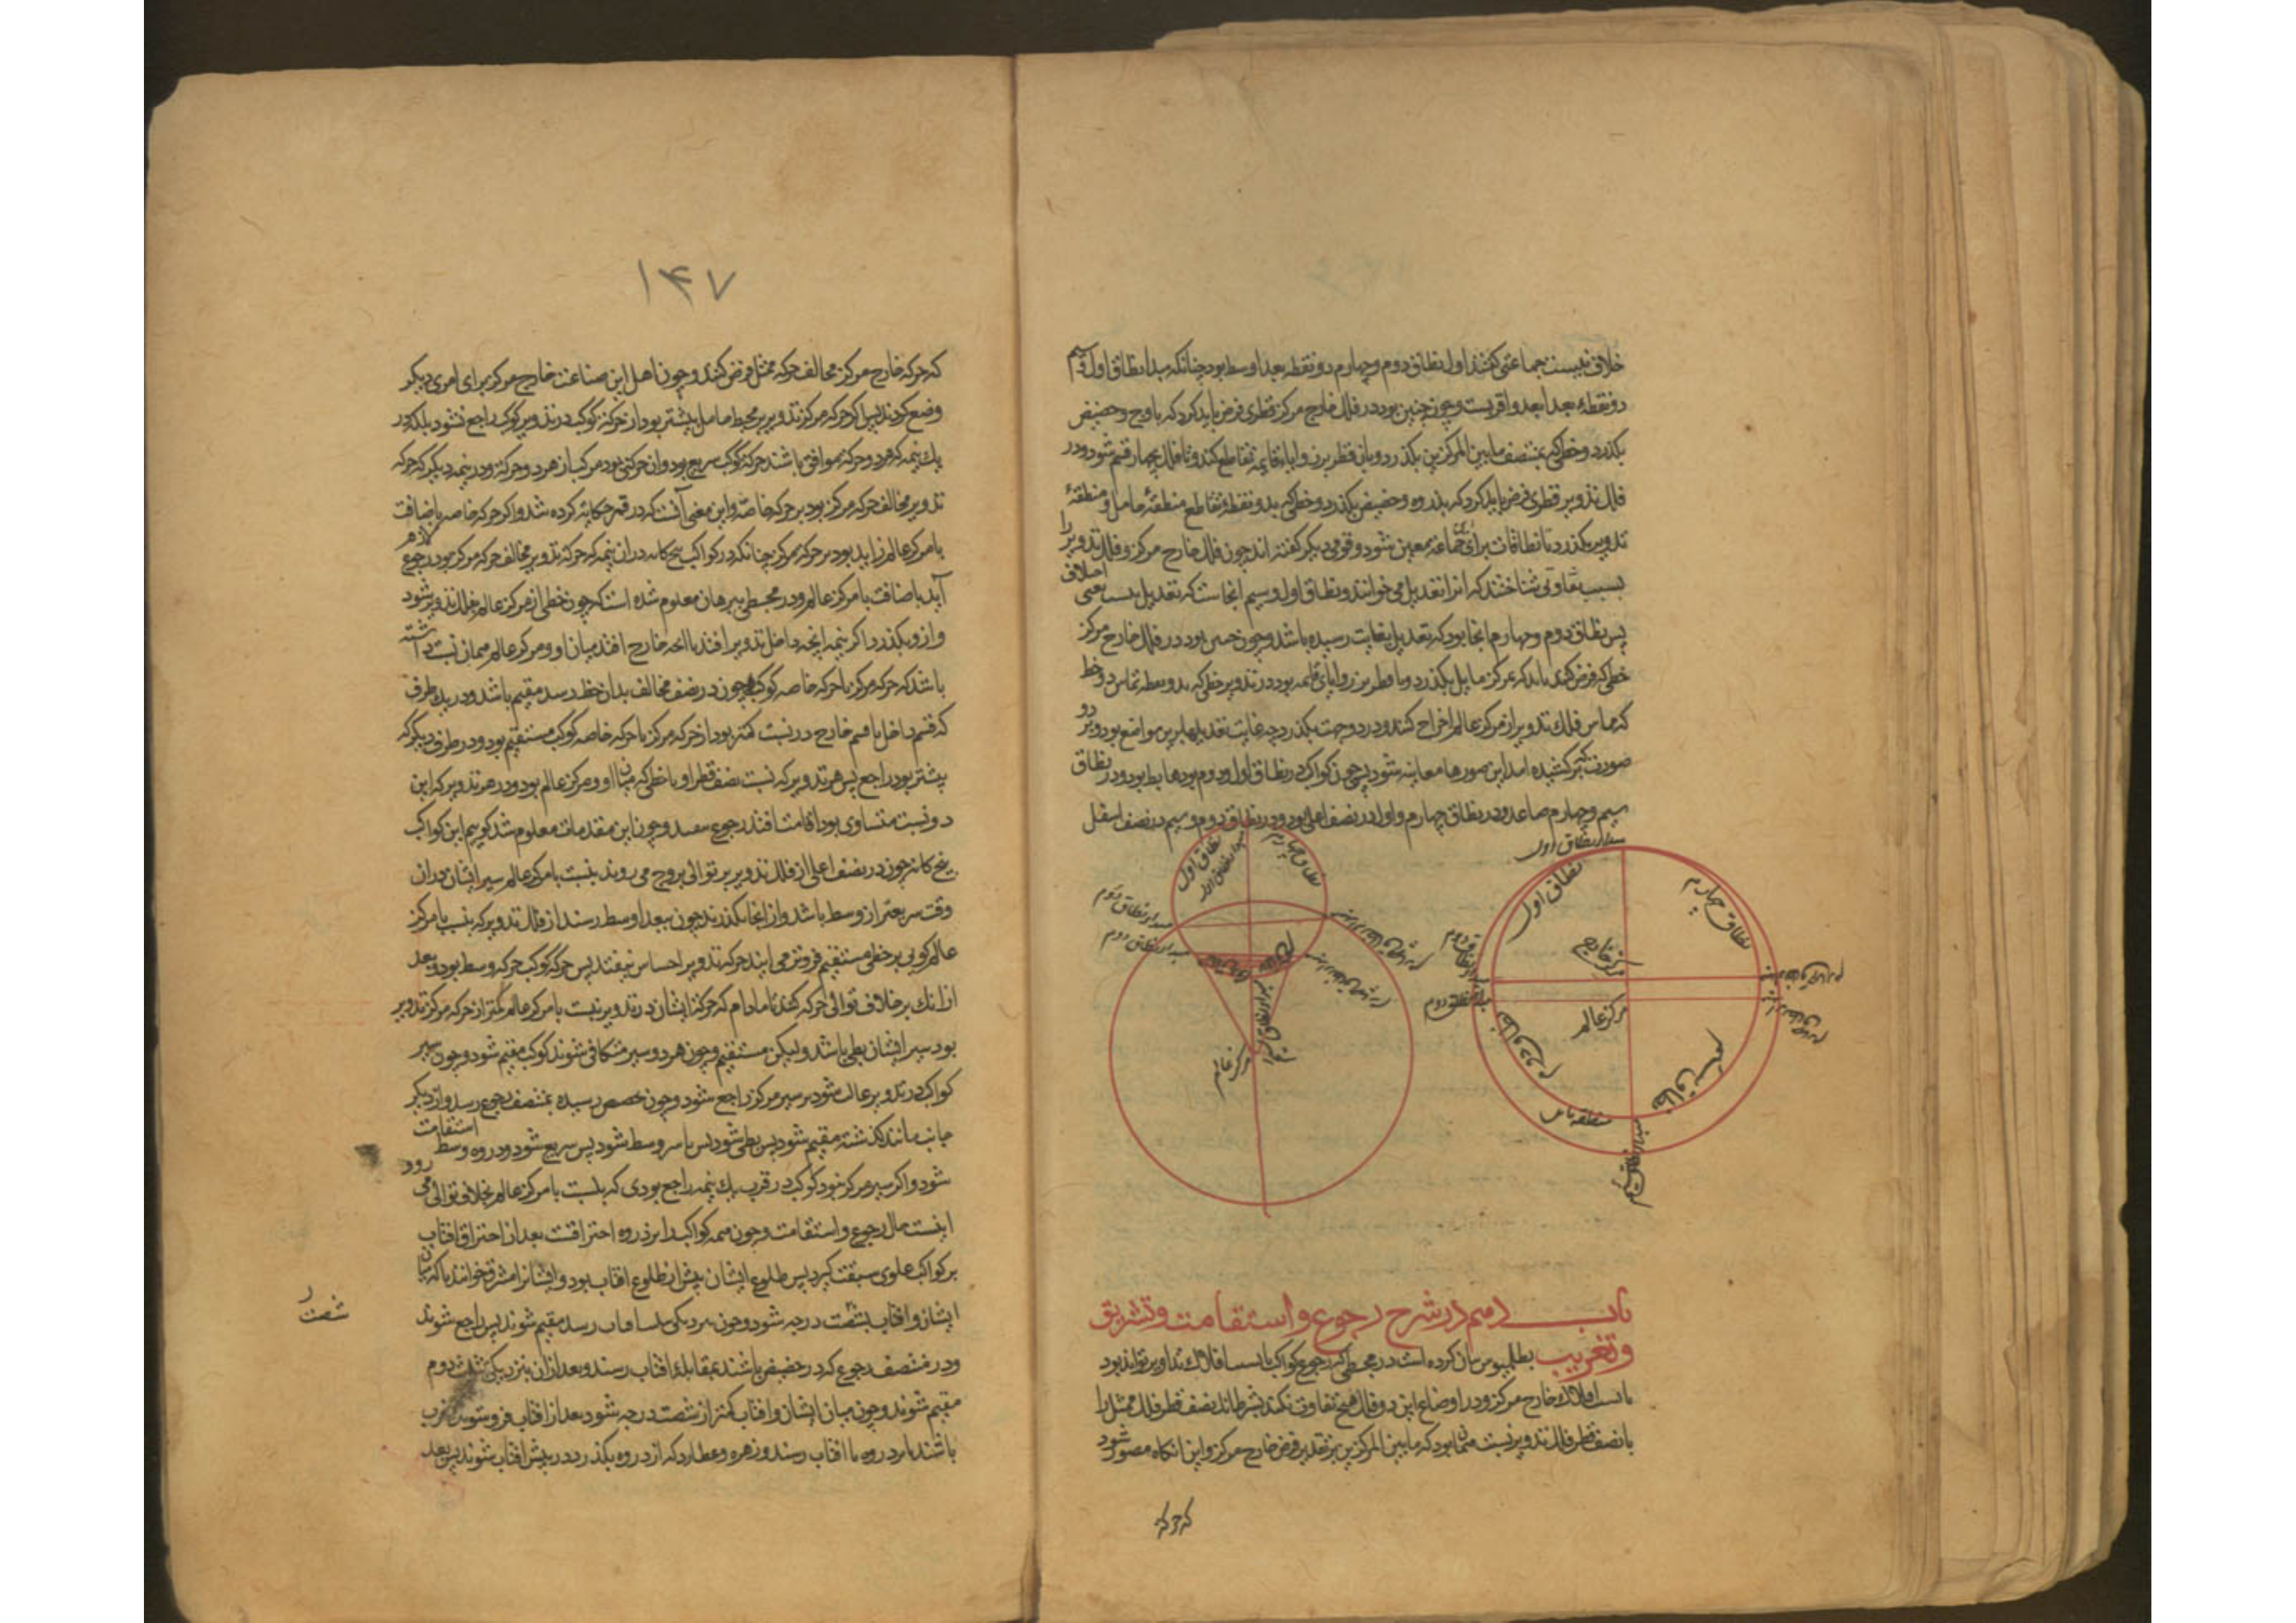 خلاف نیست جماعتی گفتند اول نطاق دوم و چهارم دو نقطه بعد اوسط بود چنانکه مبدا نطاق اول و سیم
دو نقطهٔ بعد ابعد و اقربست و چون چنین بود در فلک خارج مرکز قطری فرض باید کرد که باوج و حضیض
بگذرد و خطی که بمنتصف مابین المرکزین بگذرد و باین قطر بر زوایاء قایمه تقاطع کند و تا فلک بچهار قسم شود و در
فلک تدویر قطری فرض باید کرد که بذروه و حضیض بگذرد و خطی که بدو نقطه تقاطع منطقهٔ حامل و منطقهٔ
تدویر بگذرد تا نطاقات برای جماعه معین شود و قومی دیگر گفته اند چون فلک خارج مرکز و فلک تدویر را
بسبب تفاوتی شناختند که انرا تعدیل می خوانند و نطاق اول و سیم انجاست که تعدیل نیست یعنی اختلاف
پس نطاق دوم و چهارم انجا بود که تعدیل بغایت رسیده باشد و چون چنین بود در فلک خارج مرکز
خطی که فرض کنند باید که بمرکز مایل بگذرد و با قطر بر زوایای قایمه بود و در تدویر خطی که بدو نقطه تماس دو خط
که مماس فلک تدویر از مرکز عالم اخراج کنند و در دو جهت بگذرد چه غایت تعدیلها برین مواضع بود و بر دو
صورت که بر کشیده امد این صورها معاینه شود پس چون کواکب در نطاق اول و دوم بود هابط بود و در نطاق
سیم و چهارم صاعد و در نطاق چهارم و اول در نصف اعلی بود و در نطاق دوم و سیم در نصف اسفل
مبدا نطاق اول
نطاق اول
نطاق چهارم
مرکز خارج
مرکز عالم
مبدا نطاق دوم
مبدا نطاق دوم
نطاق دوم
نطاق سیم
نطاق اول
مبدا نطاق اول
نطاق چهارم
مبدا نطاق دوم
مبدا نطاق دوم
مرکز عالم
باب دهم در شرح رجوع و استقامت و تشریق
و تغریب بطلمیوس بیان کرده است در مجسطی که رجوع کواکب یا بسبب افلاک تداویر تواند بود
یا بسبب افلاک خارج مرکز و در اوضاع این دو فلک هیچ تفاوت نکند بشرط انک نصف قطر فلک ممثل را
با نصف قطر فلک تدویر نسبت همان بود که مابین المرکزین بر تقدیر فرض خارج مرکز و این انگاه مصور شود
که حرکه
۱۴۷
که حرکه خارج مرکز مخالف حرکه ممثل فرض کنند و چون اهل این صناعت خارج مرکز برای امری دیگر
وضع کردند پس اگر حرکه مرکز تدویر بر محیط حامل بیشتر بود از حرکه کوکب در تدویر کوکب راجع نشود بلکه در
یک نیمه که هر دو حرکه موافق باشند حرکه کوکب سریع بود و ان حرکتی بود مرکب از هر دو حرکه و در نیمه دیگر که حرکه
تدویر مخالف حرکه مرکز بود بر حرکه خاصه و این معنی آنست که در قمر حکایه کرده شد و اگر حرکه خاصه باضافت
با مرکز عالم زاید بود بر حرکه مرکز چنانکه در کواکب پنج کانه در ان نیمه که حرکه تدویر مخالف حرکه مرکز بود رجوع لازم
آید باضافت با مرکز عالم و در مجسطی ببرهان معلوم شده است که چون خطی از مرکز عالم بفلک تدویر شود
و ازو بگذرد اگر نیمه انچه داخل تدویر افتد با انچه خارج افتد میان او و مرکز عالم همان نسبت داشته
باشد که حرکه مرکز با حرکه خاصه کوکب چون در نصف مخالف بدان خط رسد مقیم باشد و در یک طرف
که قسم داخل با قسم خارج در نسبت کمتر بود از حرکه مرکز با حرکه خاصه کوکب مستقیم بود و در طرف دیگر که
بیشتر بود راجع پس هر تدویر که نسبت نصف قطر او با خطی که میان او و مرکز عالم بود و در هر تدویر که این
دو نسبت متساوی بود اقامت افتد رجوع نیفتد و چون این مقدمات معلوم شد گوییم این کواکب
پنج کانه چون در نصف اعلی از فلک تدویر بر توالی بروج می روند بنسبت با مرکز عالم سیر ایشان دران
وقت سریعتر از وسط باشد و از انجا بگذرند چون ببعد اوسط رسند از فلک تدویر که بنسبت با مرکز
عالم گویی بر خطی مستقیم فرو می آیند حرکه تدویر احساس نیفتد پس حرکه کوکب حرکه وسط بود و بعد
ازانک بر خلاف توالی حرکه کنند تا مادام که حرکه ایشان در تدویر بنسبت با مرکز عالم کمتر از حرکه مرکز تدویر
بود سیر ایشان بطی باشد و لیکن مستقیم و چون هر دو سیر متکافی شوند کوکب مقیم شود و چون سیر
کواکب در تدویر غالب شود بر سیر مرکز راجع شود و چون بحضیض رسیده بمنتصف رجوع رسد و از دیگر
جانب مانند گذشته مقیم شود پس بطی شود پس با سیر وسط شود پس سریع شود و در ذروه وسط استقامت
شود و اگر سیر مرکز نبود کوکب در قرب یک نیمه راجع بودی که بنسبت با مرکز عالم بخلاف توالی می رود
اینست حال رجوع و استقامت و چون همه کواکب را بر ذروه احتراقست بعد از احتراق افتاب
بر کواکب علوی سبقت گیرد پس طلوع ایشان پیش از طلوع افتاب بود و ایشانرا مشرق خوانند تا که میان
ایشان و افتاب بشصت درجه شود و چون بنزدیکی تثلیث افتاب رسد مقیم شوند پس راجع شوند
و در منتصف رجوع که در حضیض باشند بمقابله افتاب رسند و بعد ازان بنزدیکی تثلیث دوم
مقیم شوند و چون میان ایشان و افتاب کمتر از شصت درجه شود بعد از افتاب فرو شوند
باشند تا بر ذروه با افتاب رسند و زهره و عطارد که از ذروه بگذرد در پیش افتاب شوند پس بعد